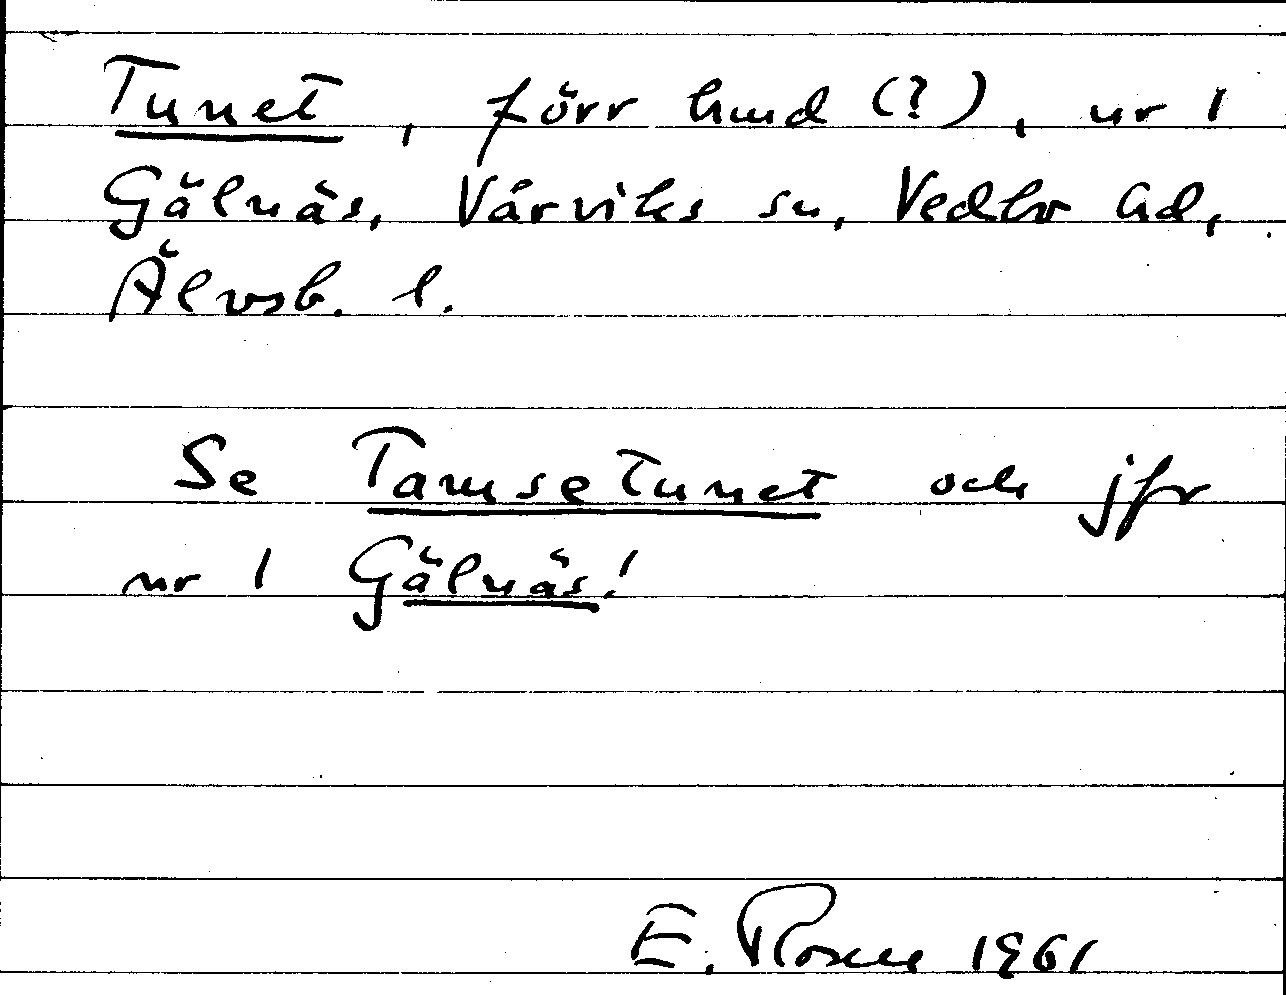 Tunet, förr hmd (?), nr 1
Gälnäs, Vårviks sn, Vedbo hd,
Älvsb. l.
Se Tamsetunet och jfr
nr 1 Gälnäs!
E. Rosen 1961